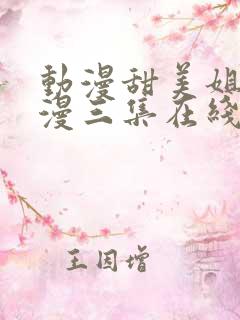 動漫甜美姐
漫三集在綫
王因增